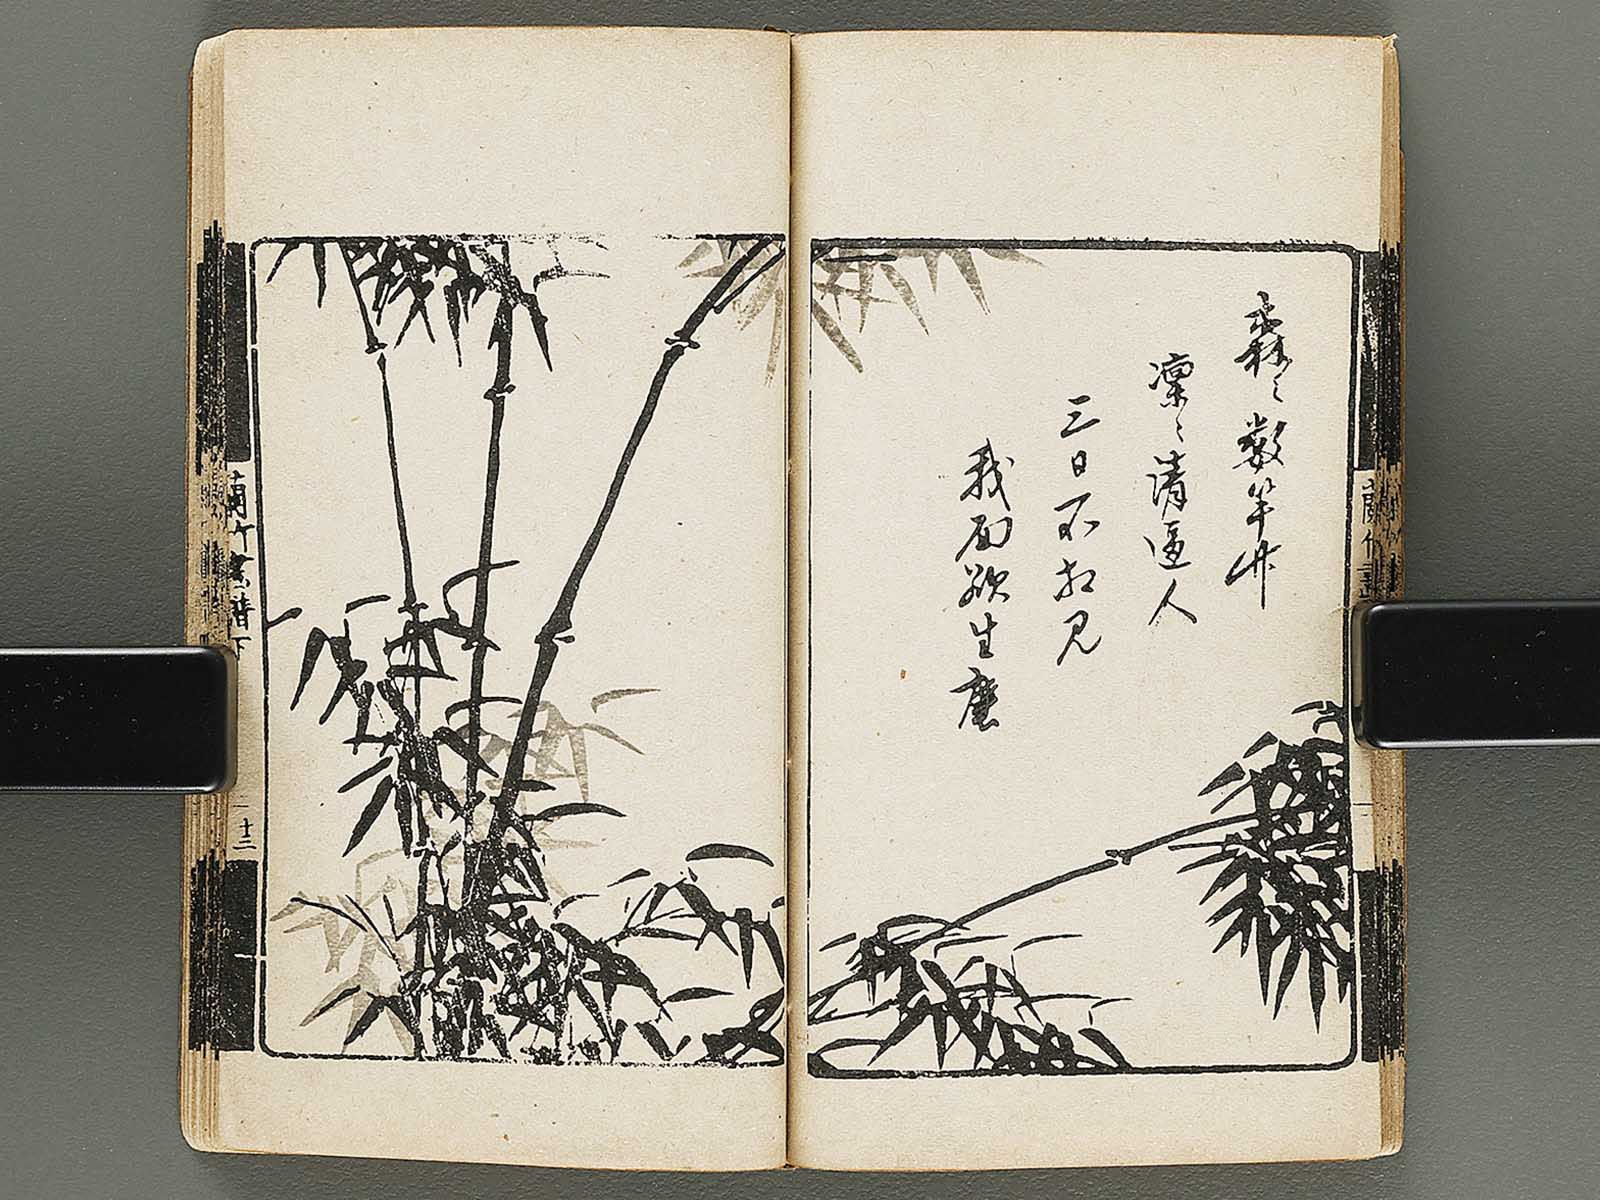 森〻数竿竹
凜〻清逼人
三日不相見
我面欲生塵
蘭竹畫譜下
十三
蘭竹畫